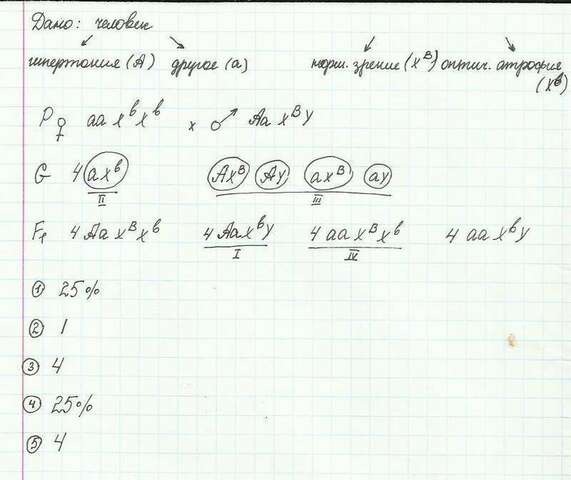 Дано: человек
гипертония (А) другое (а) норм. зрение (X^B) оптич. атрофия (X^b)
P ♀ aa X^b X^b x ♂ Aa X^B Y
G 4 aX^b AX^B AY aX^B aY
II III
F₁ 4 Aa X^B X^b 4 Aa X^b Y 4 aa X^B X^b 4 aa X^b Y
I IV
① 25%
② 1
③ 4
④ 25%
⑤ 4